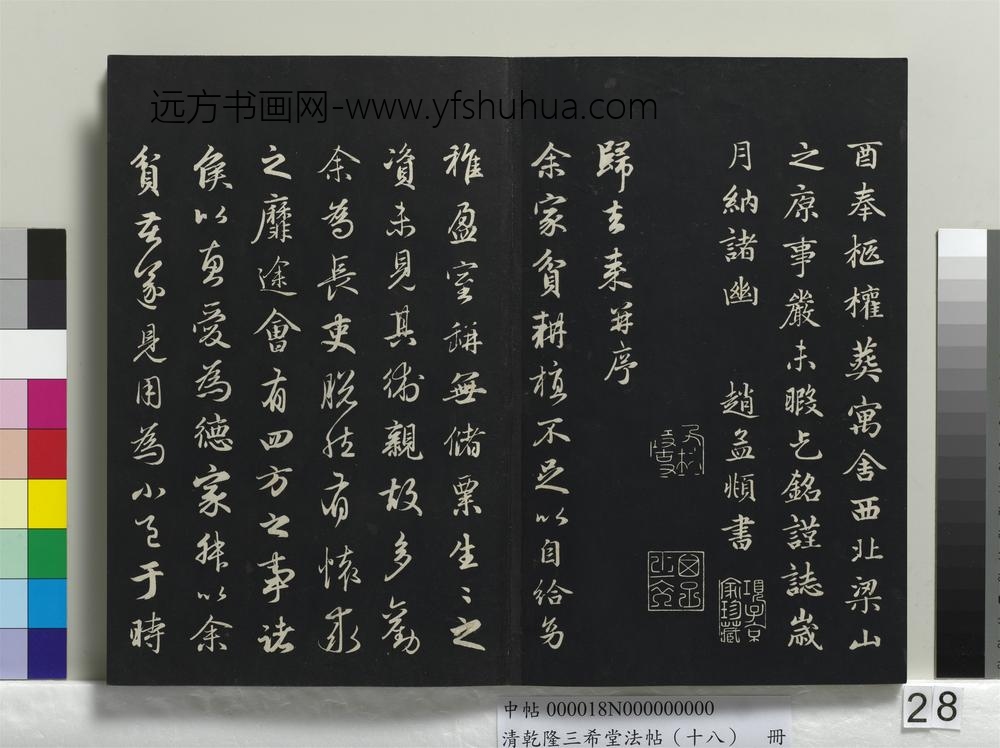 远方书画网-www.yfshuhua.com
酉奉柩權葬寓舍西北梁山
之原事嚴未暇乞銘謹誌歲
月納諸幽 趙孟頫書
項子京家珍藏
歸去来并序
余家貧耕植不足以自給幼
稚盈室缾無儲粟生〻之
資未見其術親故多勸
余為長吏脫然有懷求
之靡途會有四方之事諸
侯以惠愛為德家叔以余
貧苦遂見用為小邑于時
28
中帖 000018N000000000
清乾隆三希堂法帖（十八） 冊